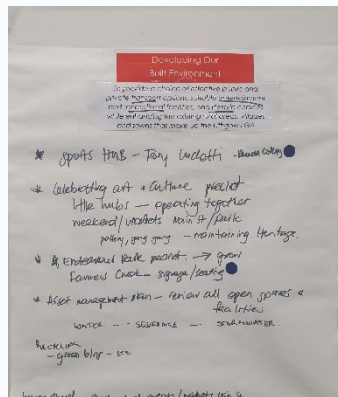 Developing Our
Built Environment
To provide a choice of effective public and
private transport options, suitable
and recreational facilities, and lifestyle
while enhancing the existing rural areas, villages
and towns that make up the Lithgow LGA
* Sports HUB - Tony Luchetti
* Celebrating art + culture precinct
little hubs - operating together
weekend/markets Main St/park
pottery, - maintaining Heritage.
* Endeavour Park precinct → grow
Farmers Creek - signage/seating
* Asset management Plan - review all open spaces &
facilities
WATER - SEWERAGE - STORMWATER.
- green bins - etc